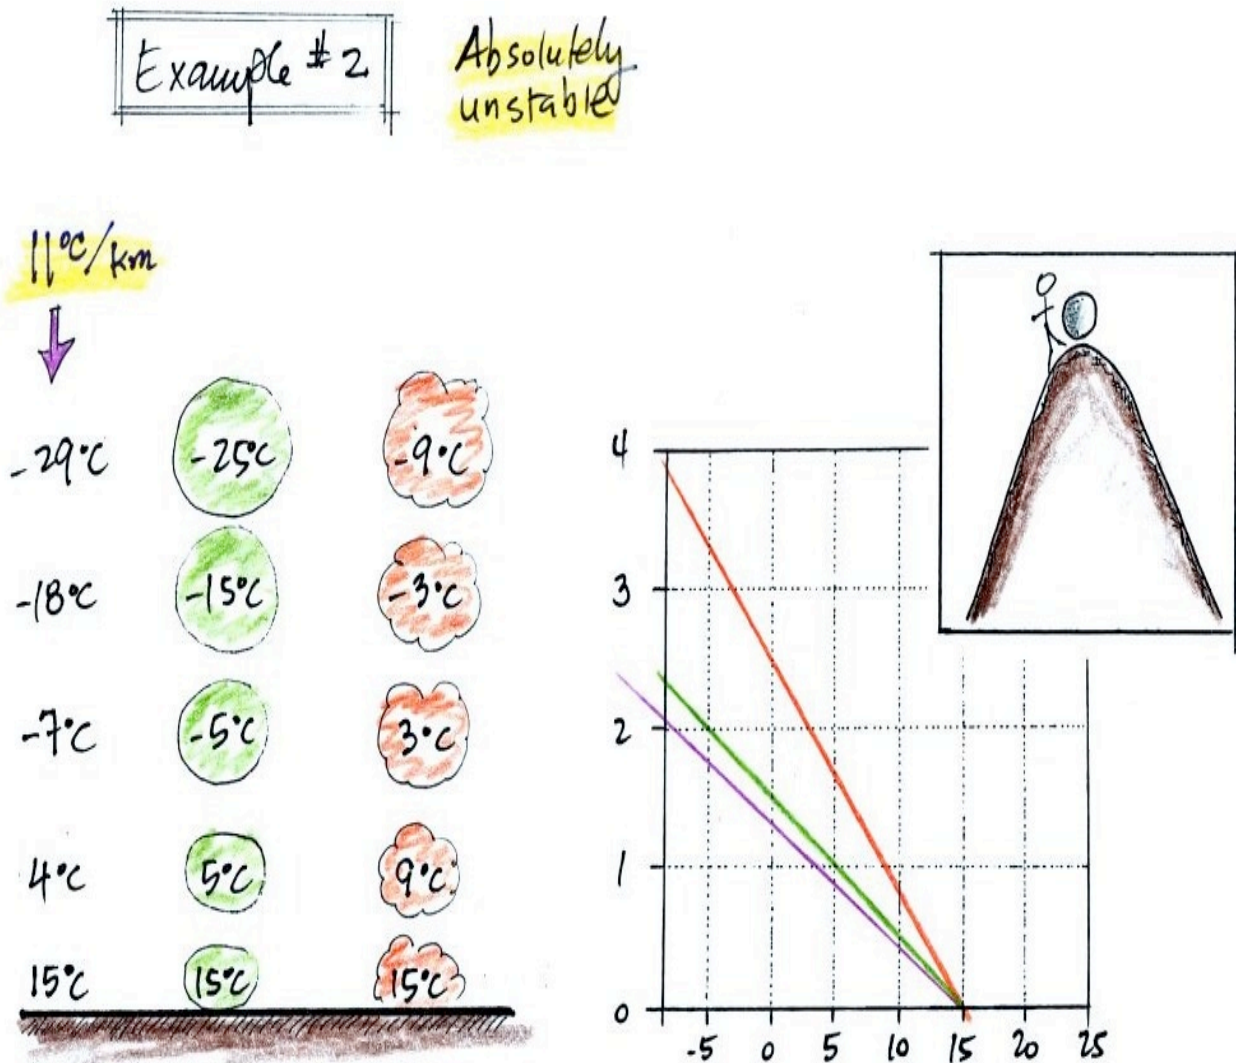 Example #2
Absolutely
unstable
11°C/km
-29°C -25°C -9°C
-18°C -15°C -3°C
-7°C -5°C 3°C
4°C 5°C 9°C
15°C 15°C 15°C
4
3
2
1
0
-5 0 5 10 15 20 25